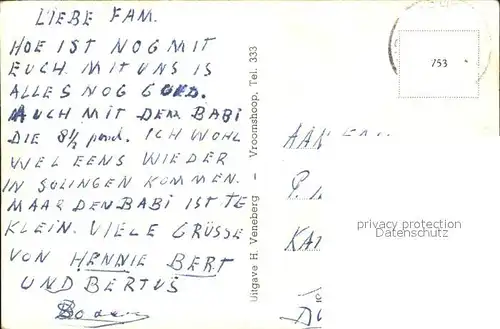 LIEBE FAM.
HOE IST NOG MIT
EUCH. MIT UNS IS
ALLES NOG GOED.
AUCH MIT DEM BABI
DIE 8½ pond. ICH WOHL
WEL EENS WIEDER
IN SOLINGEN KOMMEN.
MAAR DEN BABI IST TE
KLEIN. VIELE GRÜSSE
VON HENNIE BERT
UND BERTUS
Uitgave H. Veneberg - Vroomshoop, Tel. 333
753
AAN
P.
KA
privacy protection
Datenschutz